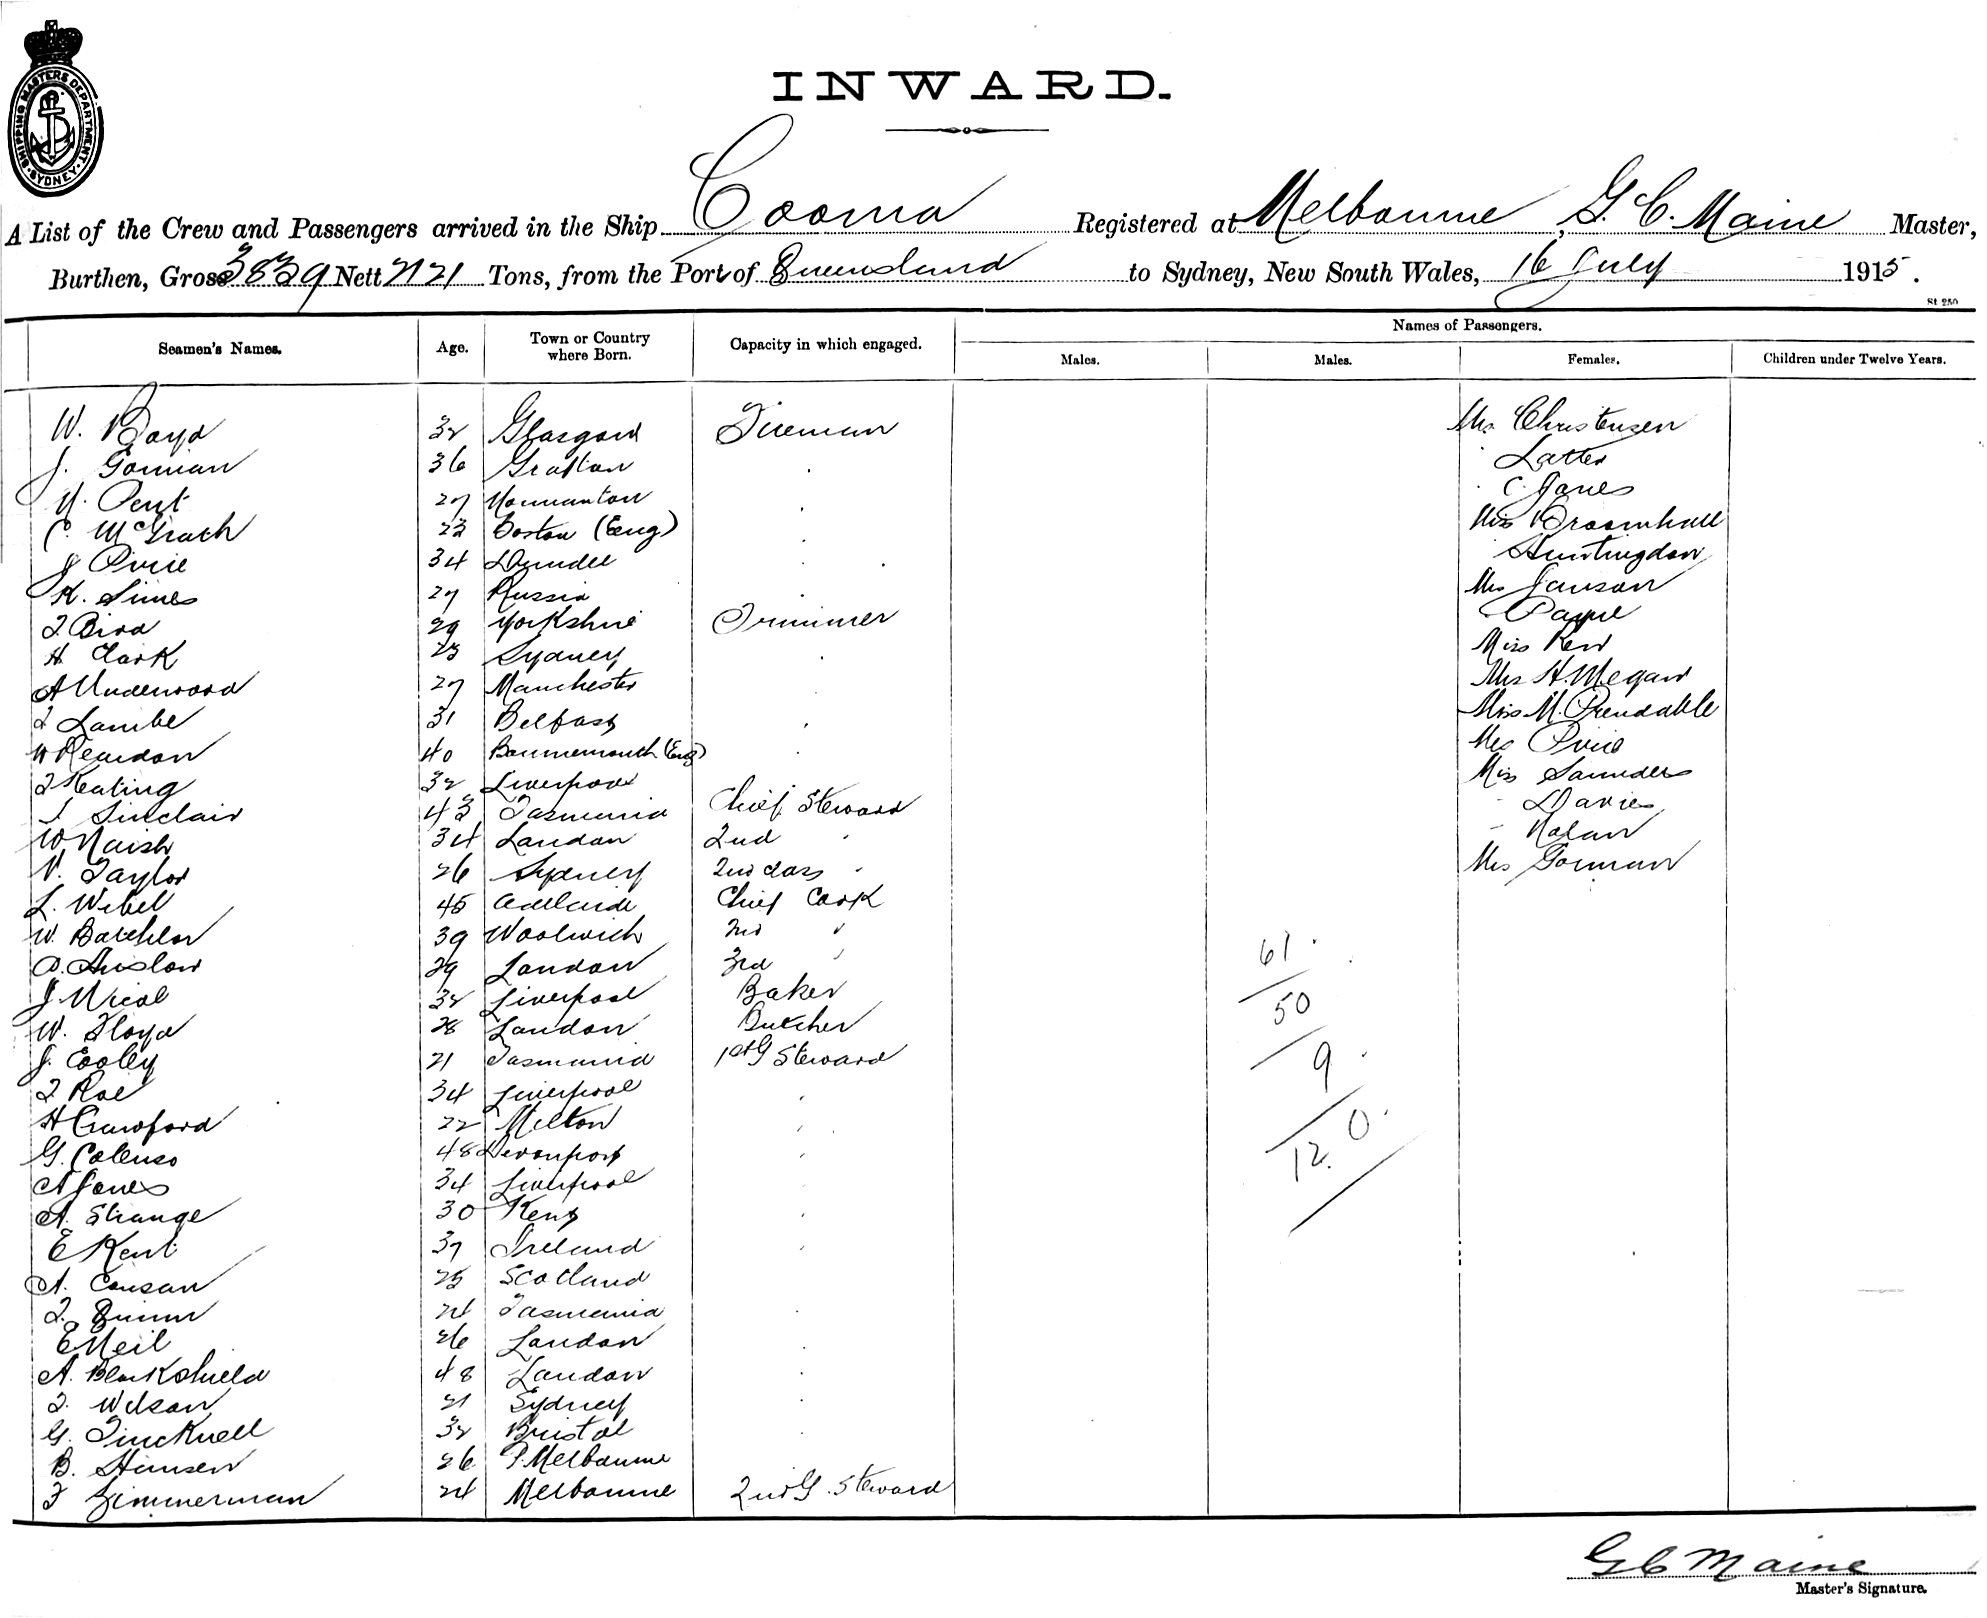 SHIPPING MASTERS DEPARTMENT SYDNEY
INWARD.
A List of the Crew and Passengers arrived in the Ship Cooma Registered at Melbourne, G. C. Maine Master,
Burthen, Gross 3839 Nett 2121 Tons, from the Port of Queensland to Sydney, New South Wales, 16 July 1915.
St 250
Names of Passengers.
Seamen's Names. Age. Town or Country where Born. Capacity in which engaged. Males. Males. Females. Children under Twelve Years.
W. Boyd 32 Glasgow Fireman Mrs Christensen
J. Gorman 36 Grafton Latter
Pent 27 Normanton C. Jones
C. McGrath 23 Boston (Eng) Miss Broomhall
J Pirie 34 Dundee Huntingdon
K. Simes 27 Russia Mrs Janson
T Bird 29 Yorkshire Trimmer Payne
H Clark 23 Sydney Miss Kew
A Underwood 27 Manchester Mrs H. Megaw
T Lambe 31 Belfast Miss M. Prendable
W Reardon 40 Bournemouth (Eng) Mrs Pirie
T Keating 32 Liverpool Miss Saunders
Sinclair 43 Tasmania Chief Steward - Davies
W Naish 34 London 2nd " - Nolan
V. Taylor 26 Sydney 2nd class " Mrs Gorman
L. Wibel 45 Adelaide Chief Cook
W. Batchlor 39 Woolwich 2nd " 61
A. Anslow 29 London 3rd "
J. Nicol 32 Liverpool Baker 50
W. Floyd 28 London Butcher
J. Cooley 21 Tasmania 1st G Steward 9
T Roe 34 Liverpool
H Crawford 22 Milton 120
G. Colenso 48 Devonport
A Jones 34 Liverpool
A. Strange 30 Kent
E Kent 37 Ireland
A. Cousan 25 Scotland
T. Quinn 24 Tasmania
E Neil 26 London
A. Blackshield 48 London
T. Wilson 21 Sydney
G. Tincknell 32 Bristol
B. Hansen 26 P. Melbourne
F Zimmerman 24 Melbourne 2nd G. Steward
G C Maine
Master's Signature.